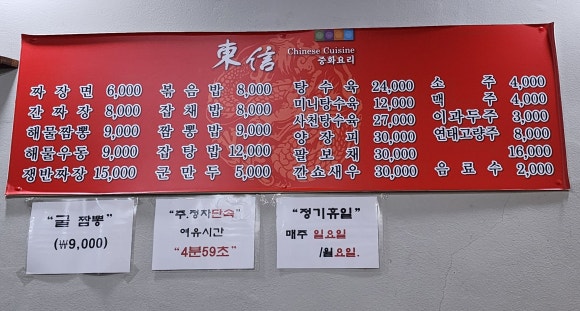 東信 Chinese Cuisine
중화요리
짜장면 6,000
간짜장 8,000
해물짬뽕 9,000
해물우동 9,000
쟁반짜장 15,000
볶음밥 8,000
잡채밥 8,000
짬뽕밥 9,000
잡탕밥 12,000
군만두 5,000
탕수육 24,000
미니탕수육 12,000
사천탕수육 27,000
양장피 30,000
팔보채 30,000
간쇼새우 30,000
소주 4,000
맥주 4,000
이과두주 3,000
연태고량주 8,000
16,000
음료수 2,000
"굴 짬뽕"
(₩9,000)
"주.정차단속"
여유시간
"4분59초"
"정기휴일"
매주 일요일
/월요일.